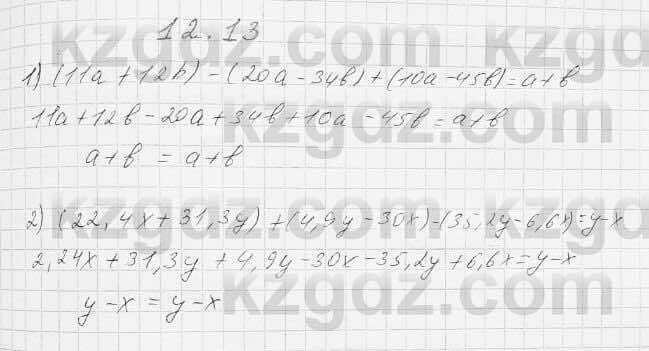 12.13
1) (11a + 12b) - (20a - 34b) + (10a - 45b) = a + b
11a + 12b - 20a + 34b + 10a - 45b = a + b
a + b = a + b
2) (22,4x + 31,3y) + (4,9y - 30x) - (35,2y - 6,6x) = y - x
2,24x + 31,3y + 4,9y - 30x - 35,2y + 6,6x = y - x
y - x = y - x
kzgdz.com kzgdz.com
kzgdz.com
kzgdz.com kzgdz.com
kzgdz.com